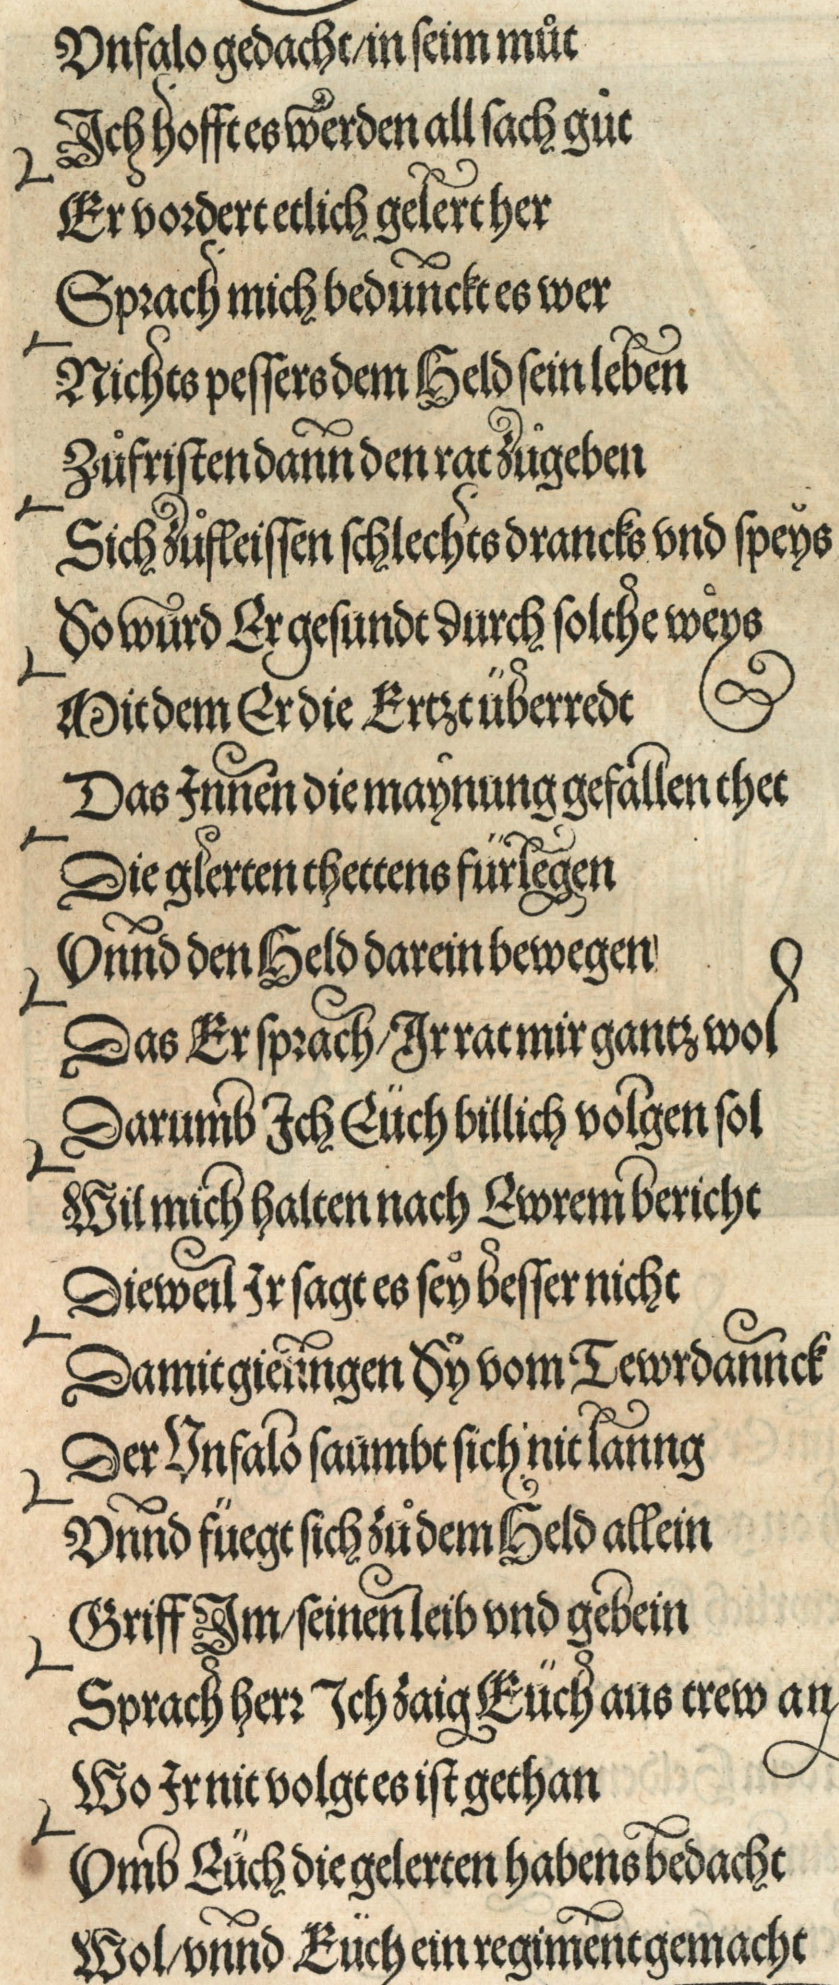 Vnfalo gedacht/in seim můt
Ich hofft es werden all sach gůt
Er vordert etlich gelert her
Sprach mich bedunckt es wer
Nichts pessers dem Held sein leben
Zůfristen dann den rat zůgeben
Sich zůfleissen schlechts drancks vnd speys
So wurd Er gesundt durch solche weys
Mit dem Er die Ertzt überredt
Das Innen die maynung gefallen thet
Die glerten thettens fürlegen
Vnnd den Held darein bewegen
Das Er sprach/Ir rat mir gantz wol
Darumb Ich Eüch billich volgen sol
Wil mich halten nach Ewrem bericht
Dieweil Ir sagt es sey besser nicht
Damit gienngen Sy vom Tewrdannck
Der Vnfalo saumbt sich nit lanng
Vnnd füegt sich zů dem Held allein
Griff Im/seinen leib vnd gebein
Sprach herr Ich zaig Eüch aus trew an
Wo Ir nit volgt es ist gethan
Vmb Eüch die gelerten habens bedacht
Wol/vnnd Eüch ein regiment gemacht